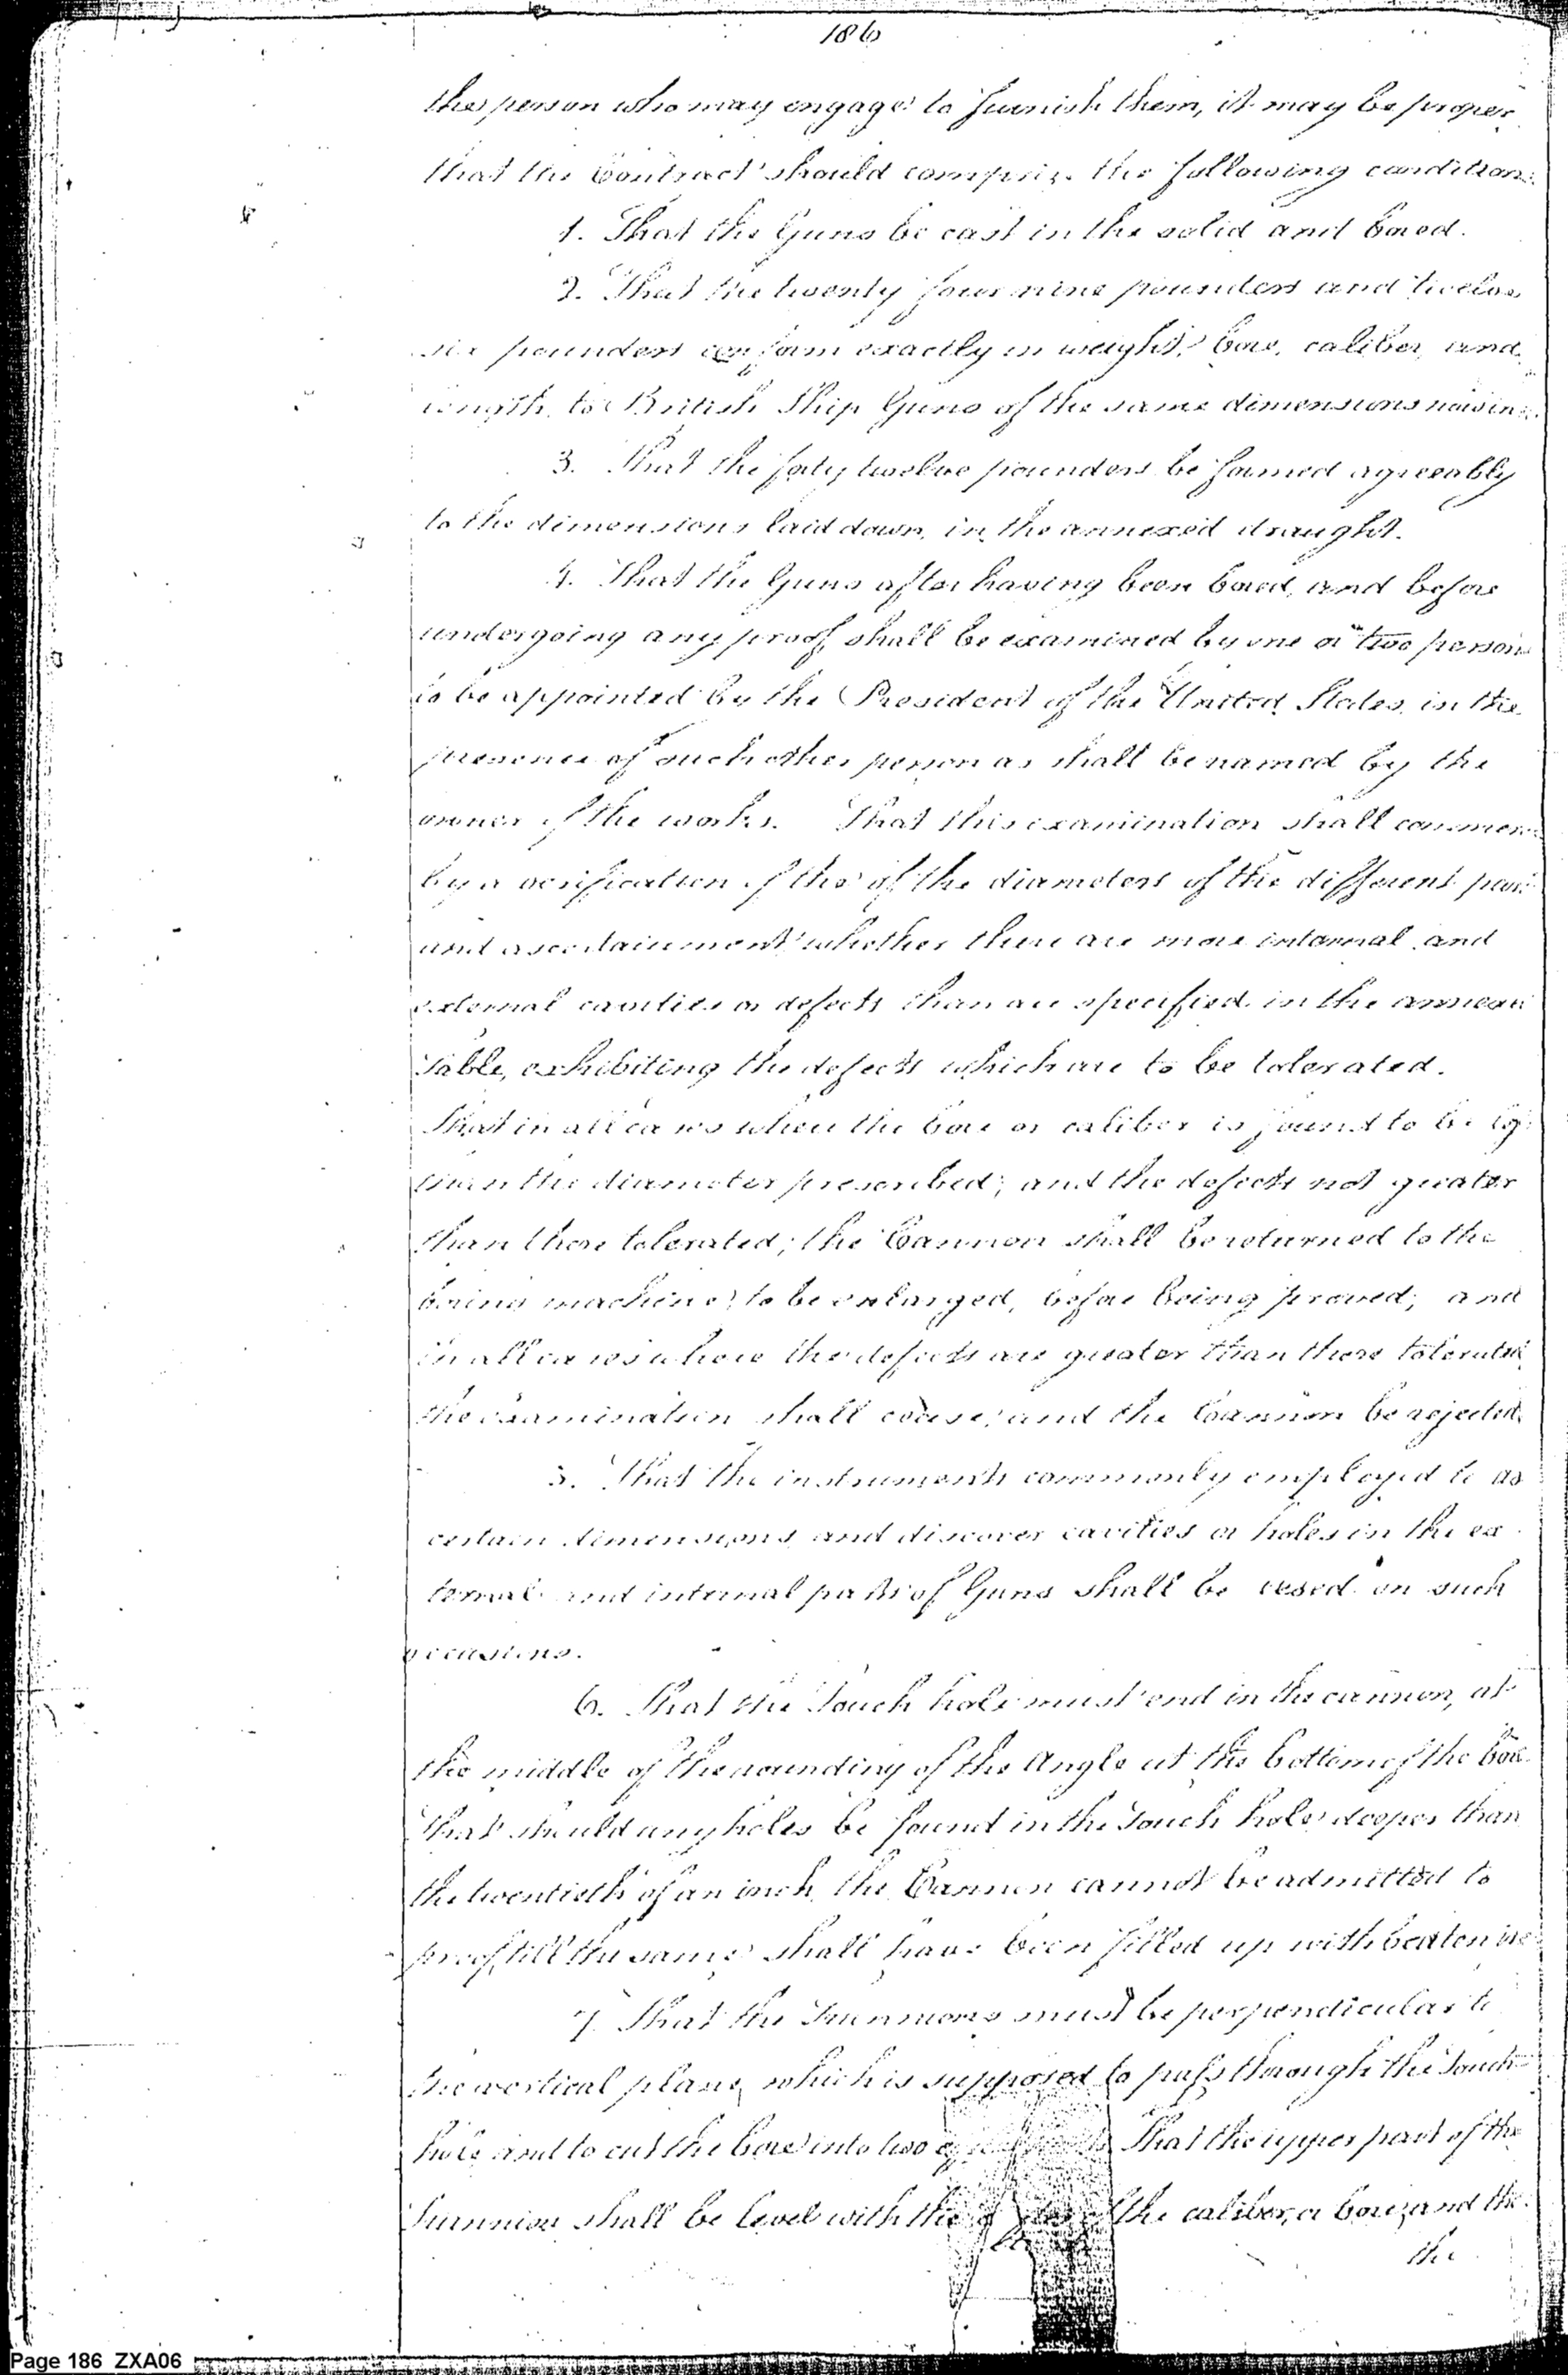 186
the person who may engage to furnish them, it may be proper
that the Contract should comprize the following conditions.
1. That the Guns be cast in the solid and bored.
2. That the twenty four nine pounders and twelve
six pounders conform exactly in weight, bore, caliber and
length to British Ship Guns of the same dimensions now in
3. That the forty twelve pounders be formed agreeably
to the dimensions laid down in the annexed draught.
4. That the Guns after having been bored, and before
undergoing any proof, shall be examined by one or two persons
to be appointed by the President of the United States, in the
presence of such other person as shall be named by the
owner of the works. That this examination shall commence
by a verification of the of the diameters of the different parts
and ascertainment whether there are more internal and
external cavities or defects than are specified in the annexed
Table, exhibiting the defects which are to be tolerated.
That in all cases where the bore or caliber is found to be
than the diameter prescribed; and the defects not greater
than those tolerated; the Cannon shall be returned to the
boring machine, to be enlarged, before being proved; and
in all cases where the defects are greater than those tolerated,
the examination shall cease; and the Cannon be rejected.
5. That the instruments commonly employed to as
certain dimensions and discover cavities or holes in the ex
ternal and internal parts of Guns shall be used on such
occasions.
6. That the Touch hole must end in the cannon, at
the middle of the rounding of the Angle at the bottom of the bore.
That should any holes be found in the Touch hole deeper than
the twentieth of an inch, the Cannon cannot be admitted to
proof, till the same shall have been filled up with beaten
7. That the Trunnions must be perpendicular to
the vertical plane, which is supposed to pass through the Touch
hole and to cut the bore into two That the upper part of the
Trunnion shall be level with the of the caliber, or bore, and the
the
Page 186 ZXA06